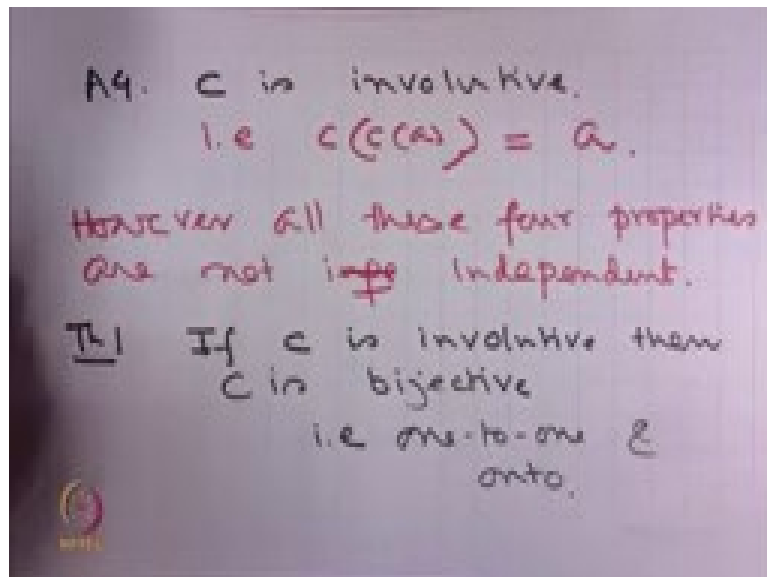 A4. C is involutive.
i.e c(c(a)) = a.
However all these four properties
are not inpe independent.
Th 1 If c is involutive then
C is bijective
i.e one-to-one &
onto.
NPTEL